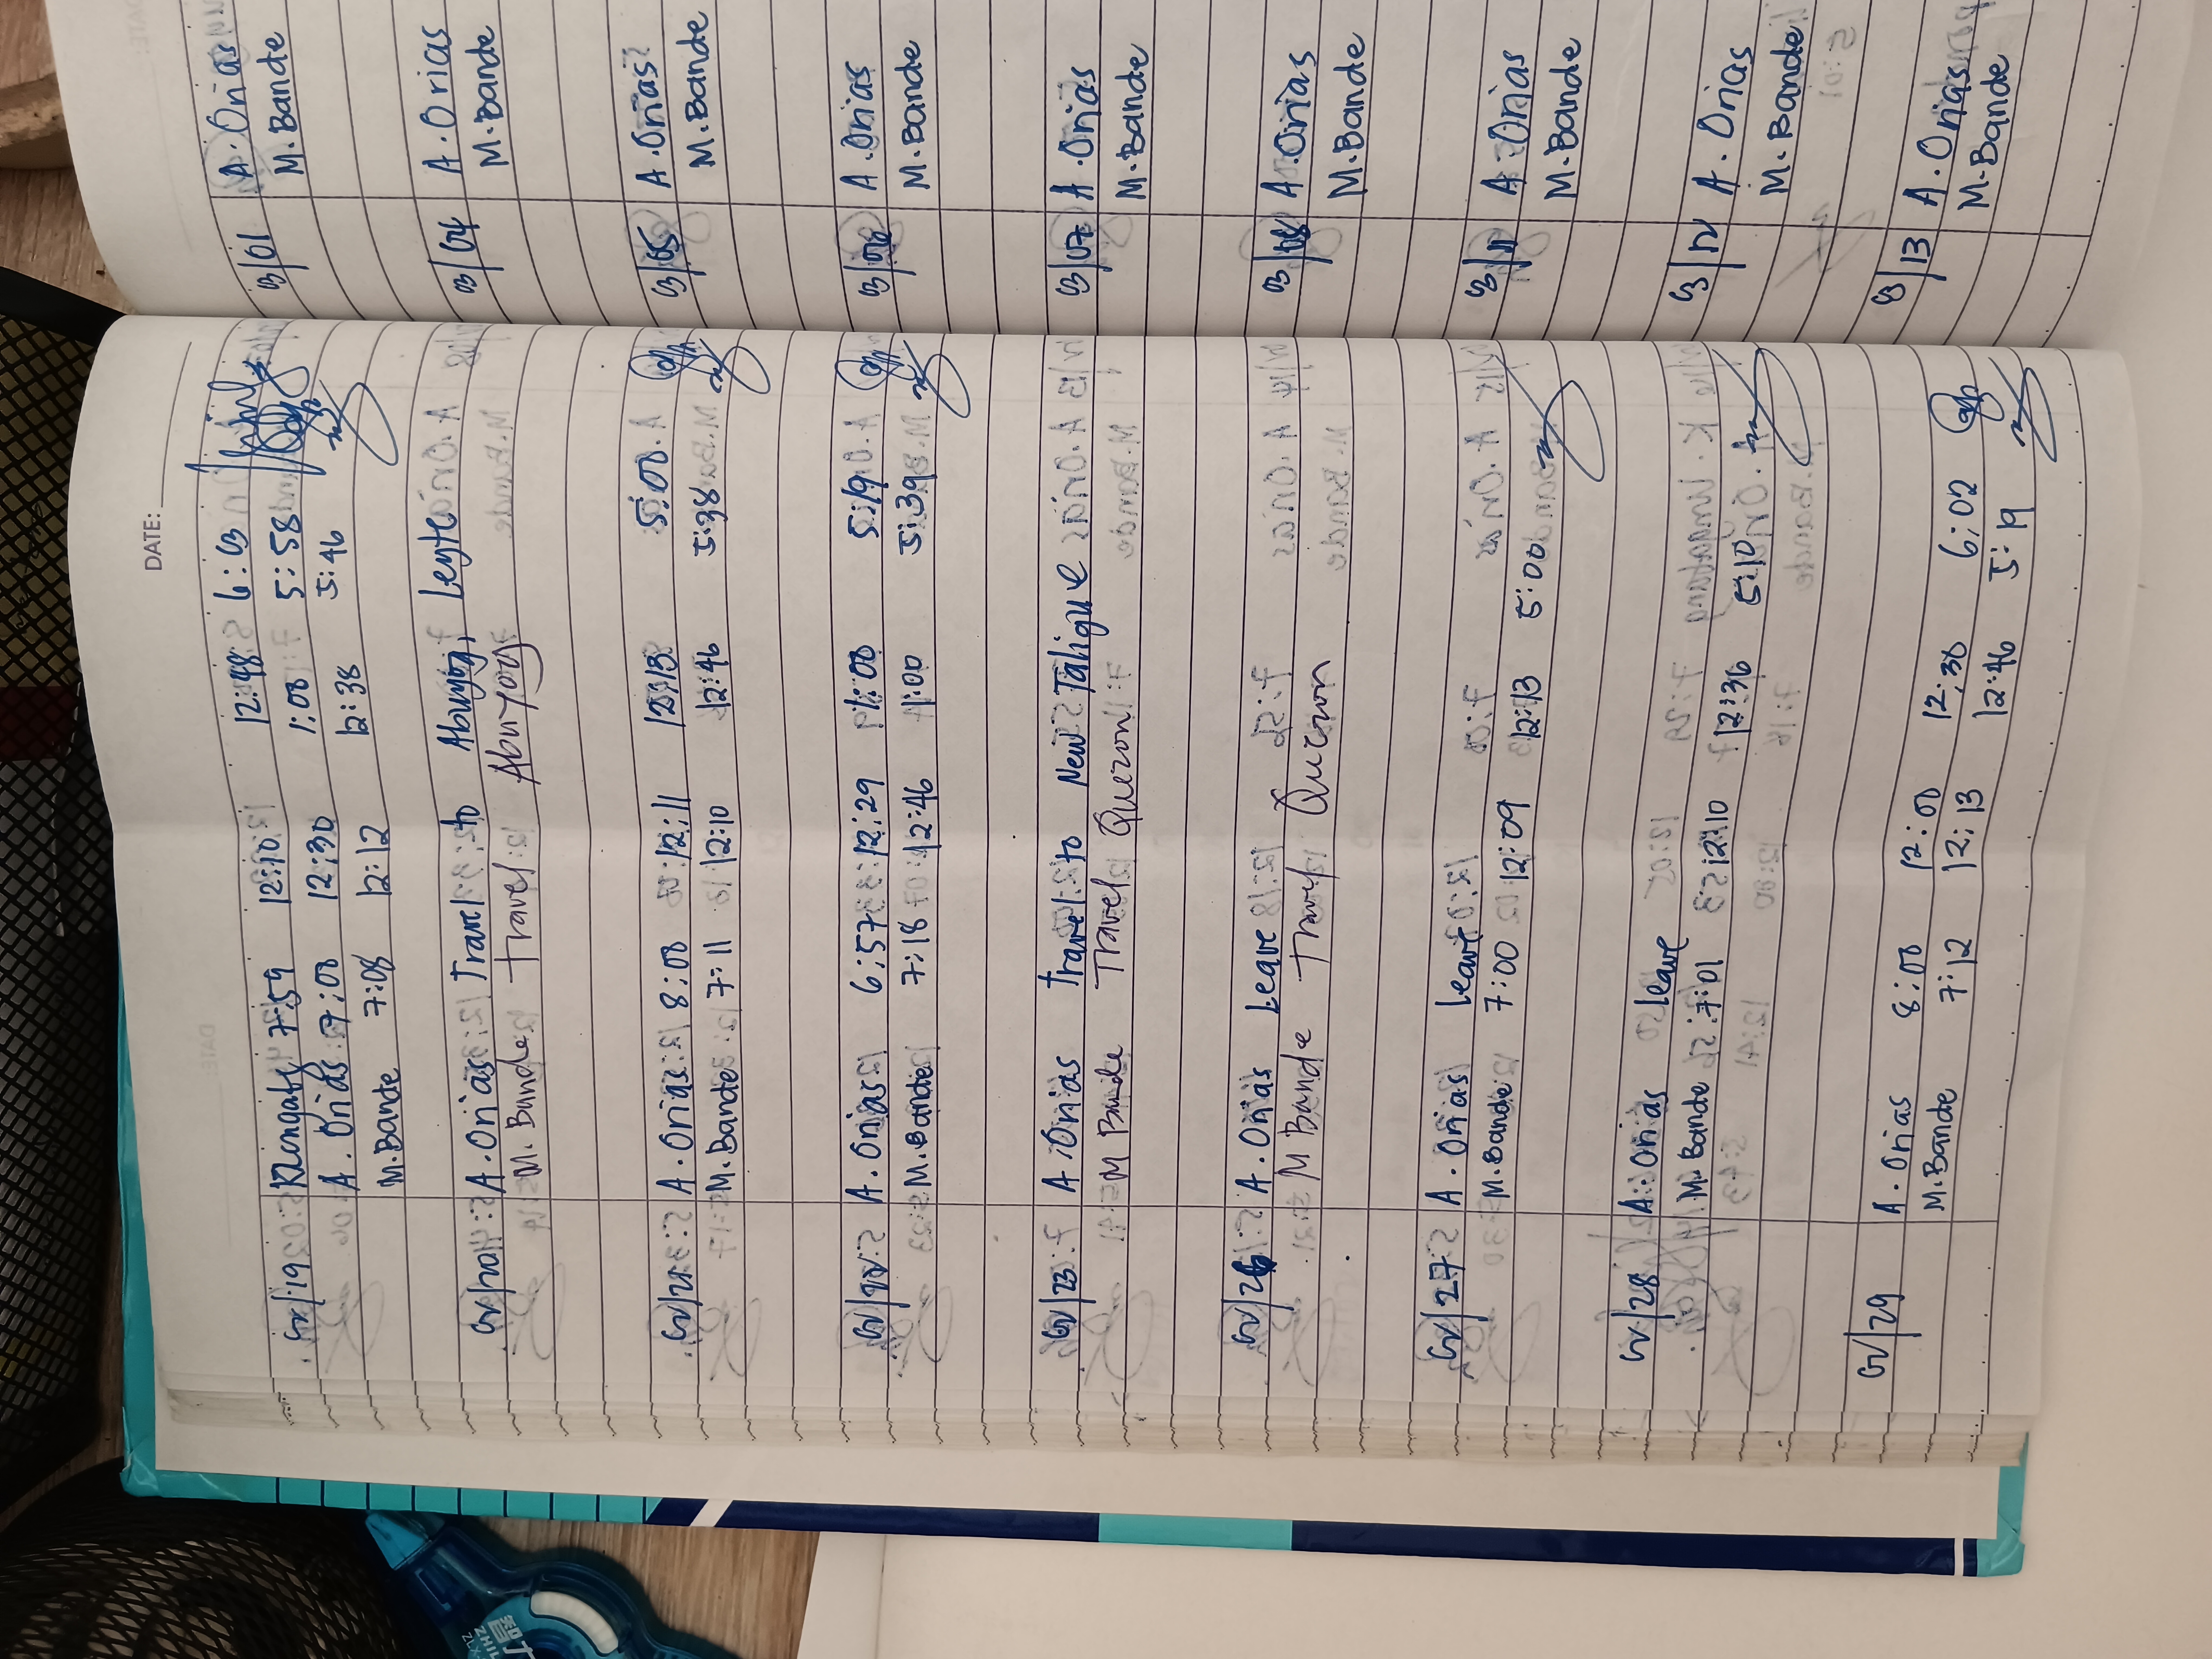 DATE:
02/19 7:59 12:10 12:48 6:03
A. Orias 7:00 12:30 1:00 5:58
M. Bande 7:08 12:12 12:38 5:46
02/20 A. Orias Travel to Abuyog, Leyte
M. Bande Travel Abuyog
02/21 A. Orias 8:00 12:11 12:13 5:00
M. Bande 7:11 12:10 12:46 5:38
02/22 A. Orias 6:57 12:29 1:00 5:19
M. Bande 7:18 12:46 1:00 5:39
02/23 A. Orias Travel to New Taligue
M Bande Travel Quezon
02/26 A. Orias Leave
M Bande Travel Quezon
02/27 A. Orias Leave
M. Bande 7:00 12:09 12:13 5:00
02/28 A. Orias Leave
M. Bande 7:01 12:10 12:36 5:10
02/29
A. Orias 8:00 12:00 12:38 6:02
M. Bande 7:12 12:13 12:46 5:19
03/01 A. Orias
M. Bande
03/04 A. Orias
M. Bande
03/05 A. Orias
M. Bande
03/06 A. Orias
M. Bande
03/07 A. Orias
M. Bande
03/08 A. Orias
M. Bande
03/11 A. Orias
M. Bande
03/12 A. Orias
M. Bande
03/13 A. Orias
M. Bande